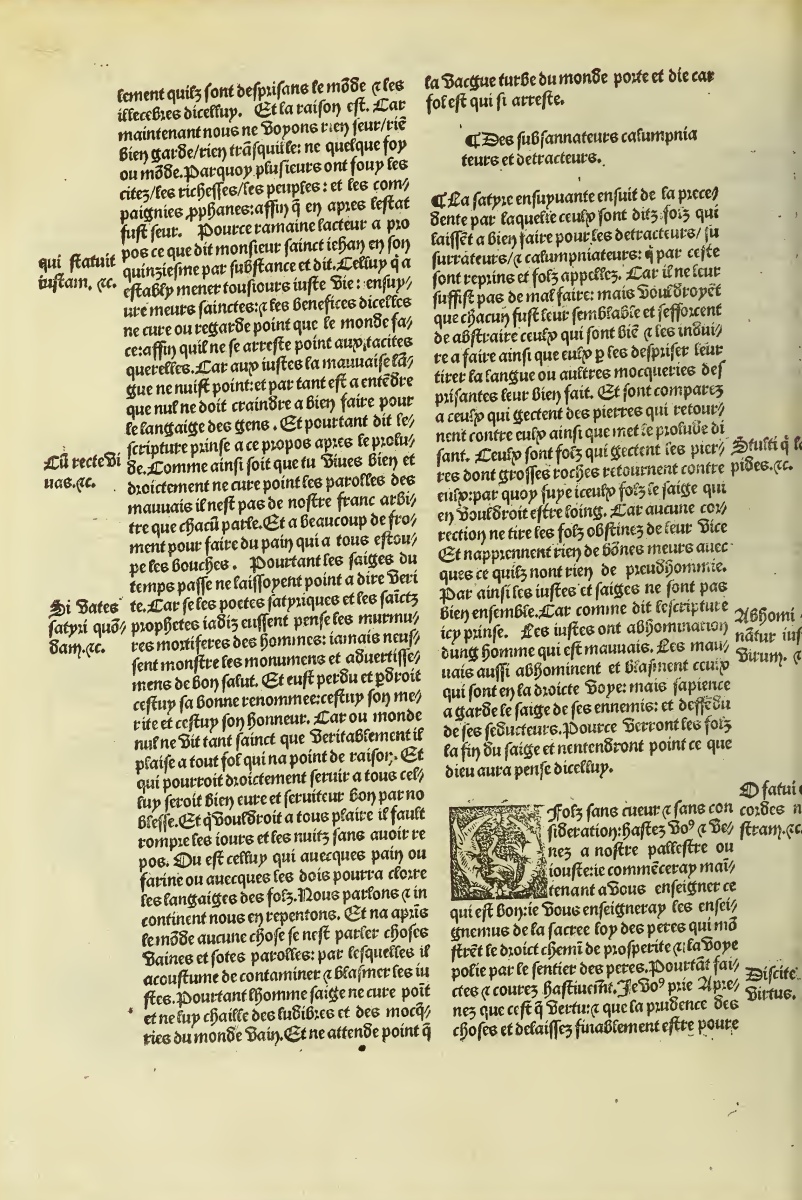 lement quilz sont desprisans le mõde ⁊ les
illecebres dicelluy. Et la raison est. Car
maintenant nous ne voyons rien seur/riẽ
bien garde/rien trãsquille: ne quelque foy
ou mõde. Parquoy plusieurs ont fouy les
citez/les richesses/les peuples: et les com/
paignies ꝓphanes: affin q̃ en apres lestat
fust seur. Pource ramaine lacteur a pro
pos ce que dit monsieur sainct iehan en son
quinziesme par substance et dit. Celluy q̃ a
estably mener tousiours iuste vie: ensuy/
ure meurs sainctes: ⁊ les benefices dicelles
ne cure ou regarde point que le monde fa/
ce: affin quil ne se arreste point aux tacites
querelles. Car aux iustes la mauuaise lã/
gue ne nuist point: et par tant est a entẽdre
que nul ne doit craindre a bien faire pour
le langaige des gens. Et pourtant dit le/
scripture prinse a ce propos apres le prosu/
de. Comme ainsi soit que tu viues bien et
droictement ne cure point les parolles des
mauuais il nest pas de nostre franc arbi/
tre que chacũ parle. Et a beaucoup de fro/
ment pour faire du pain qui a tous estou/
pe les bouches. Pourtant les saiges du
temps passe ne laissoyent point a dire veri
te. Car se les poetes satyriques et les saĩctz
prophetes iadiz eussent pense les murmu/
res mortiferes des hommes: iamais neus/
sent monstre les monumens et aduertisse/
mens de bon salut. Et eust perdu et ꝑdroit
cestuy sa bonne renommee: cestuy son me/
rite et cestuy son honneur. Car ou monde
nul ne vit tant sainct que veritablement il
plaise a tout fol qui na point de raison. Et
qui pourroit droictement seruir a tous cel/
luy seroit bien eure et seruiteur bon par no
blesse. Et q̃ vouldroit a tous plaire il fault
rompre les iours et les nuitz sans auoir re
pos. Ou est celluy qui auecques pain ou
farine ou auecques les bois pourra clorre
les langaiges des folz. Nous parlons ⁊ in
continent nous en repentons. Et na apris
le mõde aucune chose se nest parler choses
vaines et sotes parolles: par lesquelles il
acoustume de contaminer ⁊ blasmer les iu
stes. Pourtant lhomme saige ne cure poĩt
et ne luy chaille des ludibres et des mocq̃/
ries du monde vain. Et ne attende point q̃
qui statuit
iustam. ⁊c.
Cũ recte vi
uas. ⁊c.
Si vates
satyri quõ/
dam. ⁊c.
la vacgue turbe du monde porte et die car
fol est qui si arreste.
¶ Des subsannateurs calumpnia
teurs et detracteurs.
¶ La satyre ensuyuante ensuit de la prece/
dente par laquelle ceulx sont ditz folz qui
laissẽt a bien faire pour les detracteurs/su
surrateurs/⁊ calumpniateurs: q̃ par ceste
sont reprins et folz appellez. Car il ne leur
suffist pas de mal faire: mais vouldroyẽt
que chacun fust leur semblable et sefforcent
de abstraire ceulx qui sont biẽ ⁊ les indui/
re a faire ainsi que eulx ꝑ les despriser leur
tirer la langue ou aultres mocqueries des
prisantes leur bien fait. Et sont comparez
a ceulx qui gectent des pierres qui retour/
nent contre eulx ainsi que met le prosude di
sant. Ceulx sont folz qui gectent les pier/
res dont grosses roches retournent contre
eulx: par quoy fuye iceulx folz le saige qui
en vouldroit estre loing. Car aucune cor/
rection ne tire les folz obstinez de leur vice
Et nappriennent rien de bõnes meurs auec
ques ce quilz nont rien de preudhommie.
Par ainsi les iustes et saiges ne sont pas
bien ensemble. Car comme dit lescripture
icy prinse. Les iustes ont abhominacion
dung homme qui est mauuais. Les mau/
uais aussi abhominent et blasment ceulx
qui sont en la droicte voye: mais sapience
a garde le saige de ses ennemis: et deffẽdu
de ses seducteurs. Pource verront les folz
la fin du saige et nentendront point ce que
dieu aura pense dicelluy.
Folz sans cueur ⁊ sans con
sideration: hastez voꝰ ⁊ ve/
nez a nostre pallestre ou
iouste: ie commẽceray maĩ/
tenant a vous enseigner ce
qui est bon: ie vous enseigneray les ensei/
gnemus de la sacree loy des peres qui mõ
strẽt le droict chemĩ de prosperite ⁊ la voye
polie par le sentier des peres. Pourtãt fai/
ctes ⁊ courez hastiuemẽt. Je voꝰ prie Apre/
nez que cest q̃ vertu: ⁊ que la prudence des
choses et delaissez finablement estre poure
Stulti q̃
pides. ⁊c.
Abhomi
nãtur ius
virum. ⁊
O fatui
cordes
stram. ⁊c.
Discite
virtus.